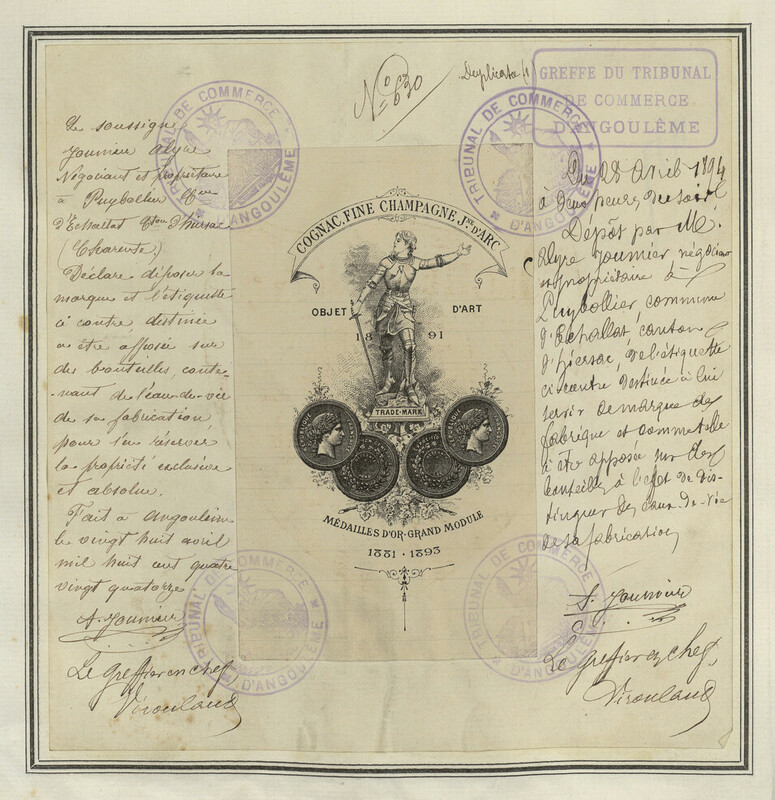 N° 630
Duplicata (1)
GREFFE DU TRIBUNAL
DE COMMERCE
D'ANGOULÊME
TRIBUNAL DE COMMERCE
D'ANGOULÊME
TRIBUNAL DE COMMERCE
D'ANGOULÊME
Je soussigné
Jounier Alyre
Négociant et propriétaire
à Puybollier Cne
d'Echallat Cton d'hiersac
(Charente)
Déclare déposer la
marque et l'étiquette
ci contre, destinée
a etre apposée sur
des bouteilles, conte-
nant de l'eau-de-vie
de sa fabrication,
pour s'en réserver
la propriété exclusive
et absolue.
Fait à Angoulême
le vingt huit avril
mil huit cent quatre
vingt quatorze
A. Jounier
Le Greffier en chef
COGNAC, FINE CHAMPAGNE JNE D'ARC
OBJET D'ART
18 91
TRADE-MARK
MÉDAILLES D'OR-GRAND MODULE
1881 · 1893
Du 28 Avril 1894
à deux heures du soir
Dépôt par M.
Alyre Jounier négociant
et propriétaire à
Puybollier, commune
d'Echallat, canton
d'hiersac, de l'étiquette
ci contre, destinée à lui
servir de marque de
fabrique et commerce
à être apposée sur des
bouteilles à l'effet de dis-
tinguer les eaux-de-vie
de sa fabrication
A. Jounier
Le Greffier en chef,
TRIBUNAL DE COMMERCE
D'ANGOULÊME
TRIBUNAL DE COMMERCE
D'ANGOULÊME